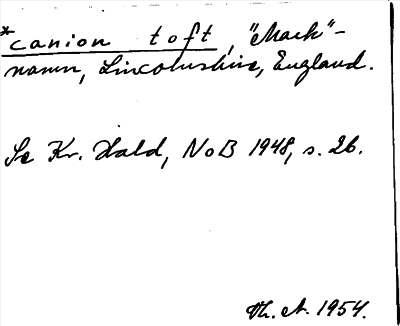 *canion toft, "Mark"-
namn, Lincolnshire, England.
Se Kr. Hald, NoB 1948, s. 26.
Th. A. 1954.